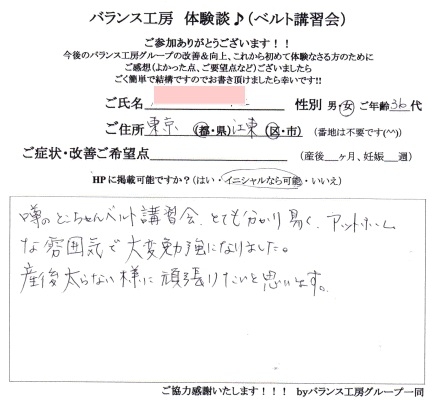 バランス工房 体験談♪(ベルト講習会)
ご参加ありがとうございます！！
今後のバランス工房グループの改善&向上、これから初めて体験なさる方のために
ご感想(よかった点、ご要望点など)ございましたら
ごく簡単で結構ですのでお書き頂けましたら幸いです!!
ご氏名 性別 男・女 ご年齢 30代
ご住所 東京(都・県) 江東(区・市) (番地は不要です(^^))
ご症状・改善ご希望点 (産後__ヶ月、妊娠__週)
HPに掲載可能ですか?(はい・イニシャルなら可能・いいえ)
噂のとこちゃんベルト講習会、とても分かり易く、アットホーム
な雰囲気で大変勉強になりました。
産後太らない様に頑張りたいと思います。
ご協力感謝いたします！！！ byバランス工房グループ一同